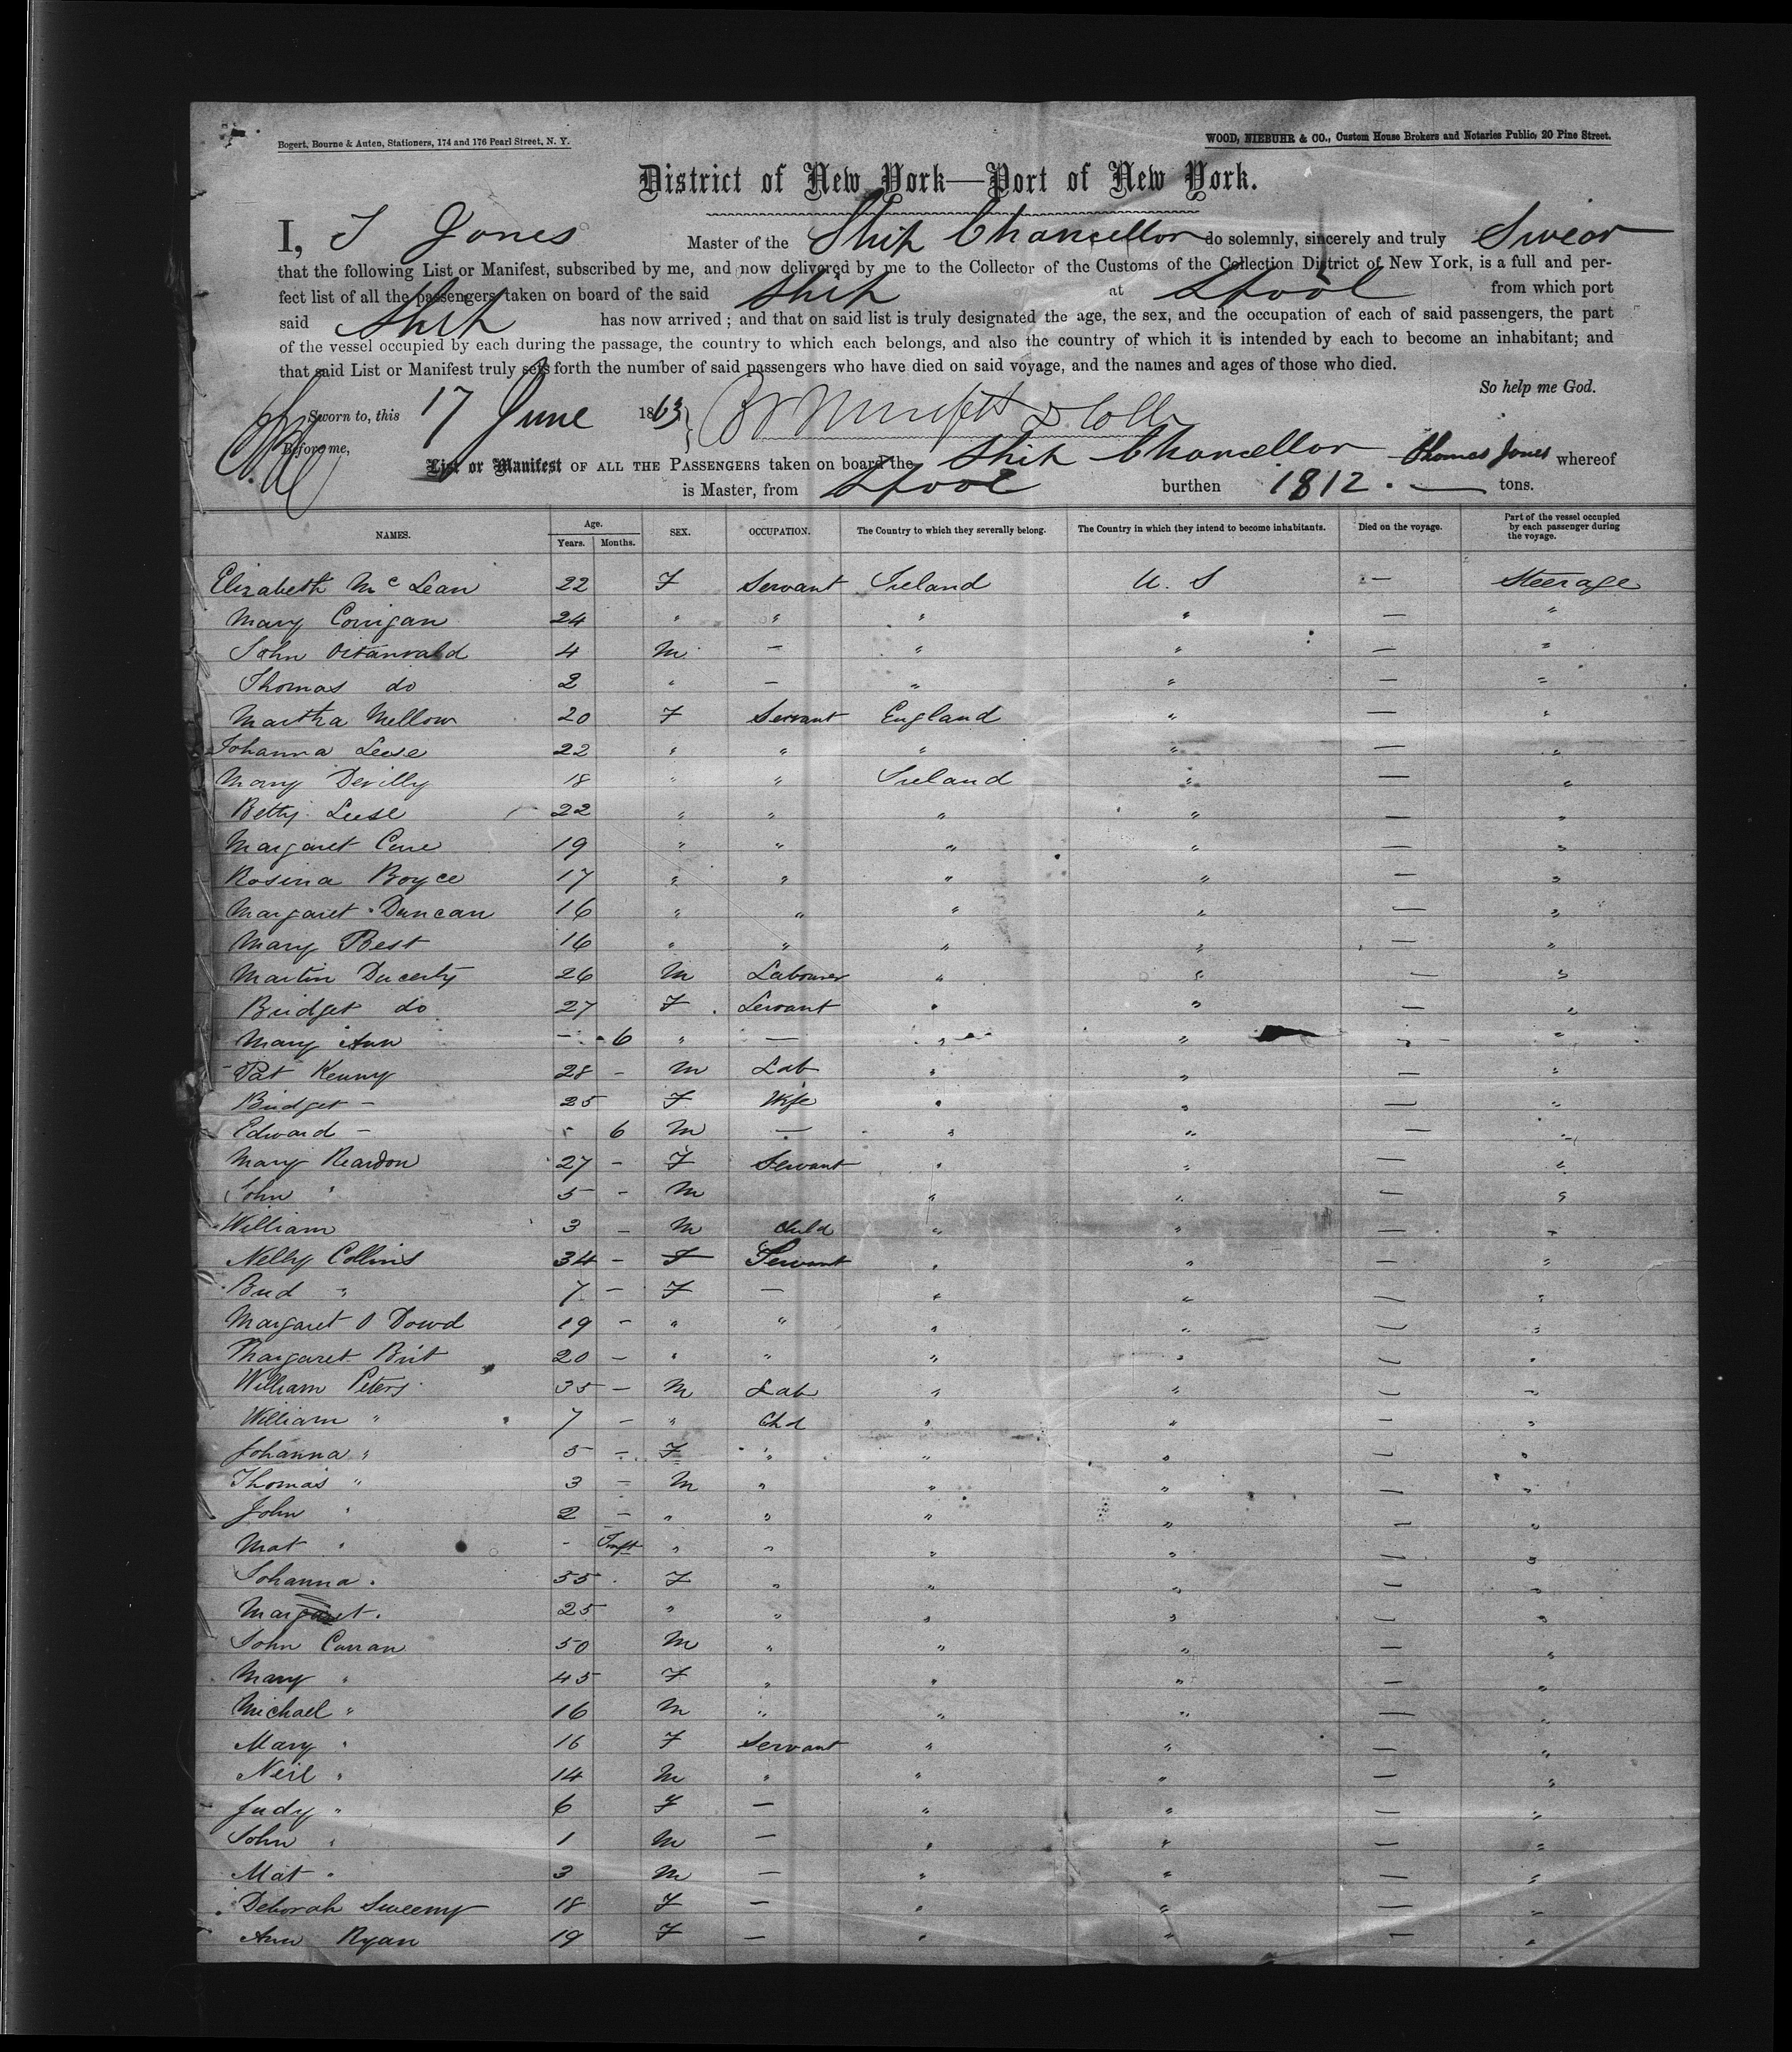 Bogert, Bourne & Auten, Stationers, 174 and 176 Pearl Street, N. Y. WOOD, NIEBUHR & CO., Custom House Brokers and Notaries Public, 20 Pine Street.
District of New York—Port of New York.
I, T Jones Master of the Ship Chancellor do solemnly, sincerely and truly Swear
that the following List or Manifest, subscribed by me, and now delivered by me to the Collector of the Customs of the Collection District of New York, is a full and per-
fect list of all the passengers taken on board of the said Ship at Lpool from which port
said Ship has now arrived; and that on said list is truly designated the age, the sex, and the occupation of each of said passengers, the part
of the vessel occupied by each during the passage, the country to which each belongs, and also the country of which it is intended by each to become an inhabitant; and
that said List or Manifest truly sets forth the number of said passengers who have died on said voyage, and the names and ages of those who died.
So help me God.
Sworn to, this 17 June 1863
Before me,
List or Manifest OF ALL THE PASSENGERS taken on board the Ship Chancellor Thomas Jones whereof
is Master, from Lpool burthen 1812 . — tons.
NAMES. Age. Years. Months. SEX. OCCUPATION. The Country to which they severally belong. The Country in which they intend to become inhabitants. Died on the voyage. Part of the vessel occupied by each passenger during the voyage.
Elizabeth Mc Lean 22 F Servant Ireland U. S — Steerage
Mary Corrigan 24 " " " " — "
John 4 M — " " — "
Thomas do 2 " — " " — "
Martha Mellow 20 F Servant England " — "
Johanna Leese 22 " " " " — "
Mary Devilly 18 " " Ireland " — "
Betty Leese 22 " " " " — "
Margaret 19 " " " " — "
Rosina Boyce 17 " " " " — "
Margaret Duncan 16 " " " " — "
Mary Best 16 " " " " — "
Martin 26 M Labourer " " — "
Bridget do 27 F Servant " " — "
Mary Ann — 6 " — " " - "
Pat Kenny 28 - M Lab " " — "
Bridget — 25 F Wife " " — "
Edward — - 6 M — " " — "
Mary Reardon 27 - F Servant " " — "
John " 5 - M " " — "
William 3 - M Child " " — "
Nelly Collins 34 - F Servant " " — "
Brid " 7 - F — " " — "
Margaret O Dowd 19 - " " " " — "
Margaret Brit 20 - " " " " — "
William Peters 35 - M Lab " " — "
William " 7 - " Chd " " — "
Johanna " 5 - F " " " — "
Thomas " 3 - M " " " — "
John " 2 - " " " " — "
Mat " - Inft " " " " — "
Johanna " 55 F " " " — "
Margaret " 25 " " " " — "
John Curran 50 M " " " — "
Mary " 45 F " " " — "
Michael " 16 M " " " — "
Mary " 16 F Servant " " — "
Neil " 14 M " " " — "
Judy " 6 F — " " — "
John " 1 M — " " — "
Mat " 3 M — " " — "
Deborah Sweeny 18 F — " " — "
Ann Ryan 19 F — " " — "